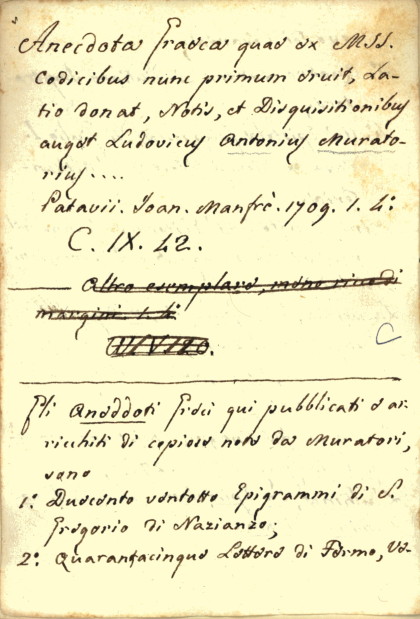 Anecdota Graeca quae ex MSS.
Codicibus nunc primum eruit, La-
tio donat, Notis, et Disquisitionibus
auget Ludovicus Antonius Murato-
rius....
Patavii. Ioan. Manfrè. 1709. 1. 4º
C. IX. 42.
Altro esemplare, meno rino di
margini. 1. 4º
Gli Aneddoti Greci qui pubblicati e ar-
ricchiti di copiose note da Muratori,
sono
1º Duecento ventotto Epigrammi di S.
Gregorio di Nazianzo;
2º Quarantacinque Lettere di Fermo, Ve-